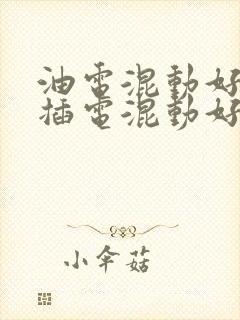 油電混動好
插電混動好
小伞菇